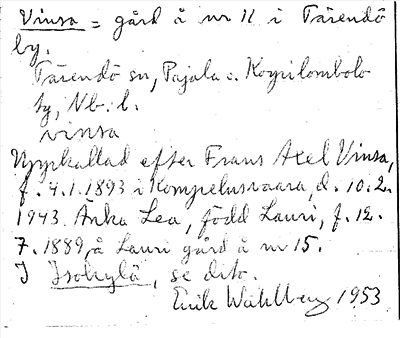 Vinsa = gård å nr 11 i Tärendö
by.
Tärendö sn, Pajala o. Korpilombolo
tg, Nb. l.
vinsa
Uppkallad efter Frans Axel Vinsa,
f. 4.1.1893 i Kompelusvaara, d. 10.2.
1943. Änka Lea, född Lauri, f. 12.
7. 1889, å Lauri gård å nr 15.
I Isokylä, se dito.
Erik Wahlberg 1953